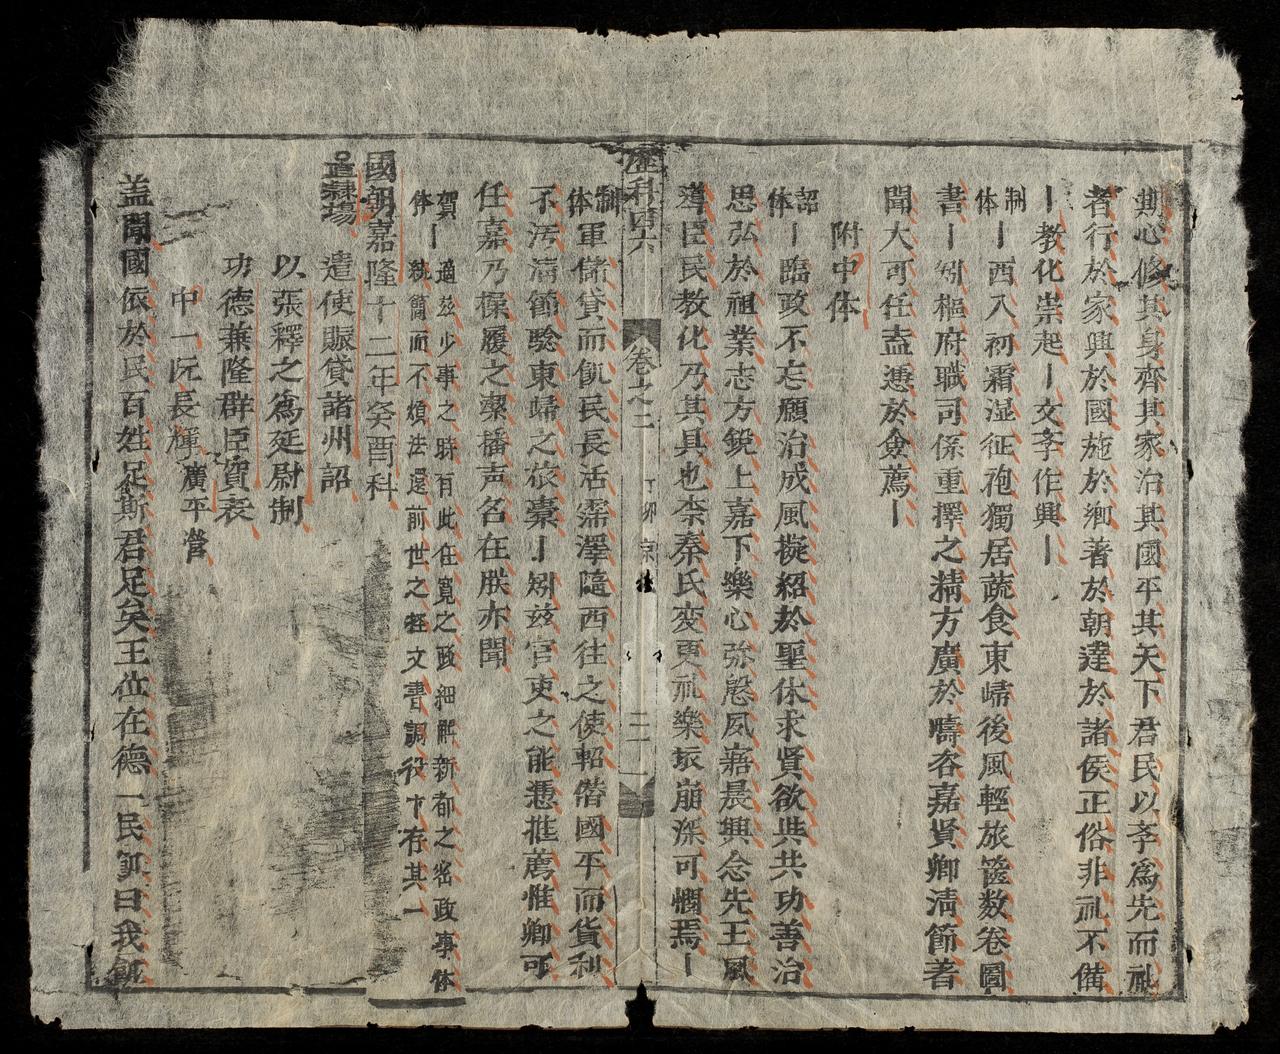 其心修其身齊其家治其國平其天下君民以孝爲先而礼
者行於家興於國施於鄕著於朝達於諸侯正俗非礼不備
〡教化崇起〡文孝作興〡
制体〡西入初霜湿征孢獨居蔬食東歸後風輕旅篋数卷圖
書〡矧樞府職司係重擇之精方廣於疇咨嘉賢卿淸節著
聞大可任盍憑於僉薦〡
附中体
詔体〡臨政不忘願治成风擬紹於聖休求贤欲共共功善治
思弘於祖業志方銳上嘉下樂心弥慇夙寤晨興念先王風
導臣民教化乃其具也柰秦氏变更礼樂坂崩深可憫焉〡
制体軍儲貸而飢民長活霈澤隨西往之使軺帶國平而貨利
不汚淸節騐東歸之衣橐〡矧玆官吏之能憑推薦惟卿可
任嘉乃操履之潔播声名在朕亦聞
賀体〡適玆少事之時有此任寬之政細觧新都之密政事体
統簡而不煩法還前世之輕文書調役十存其一
國朝嘉隆十二年癸酉科
直隷塲 遣使賑貸諸州詔
以張釋之爲延尉制
功德兼隆群臣賀表
中一阮長輝廣平營
盖聞國依於民百姓足斯君足矣王位在德一民飢曰我飢
歷科四六
卷之二
丁卯京
二